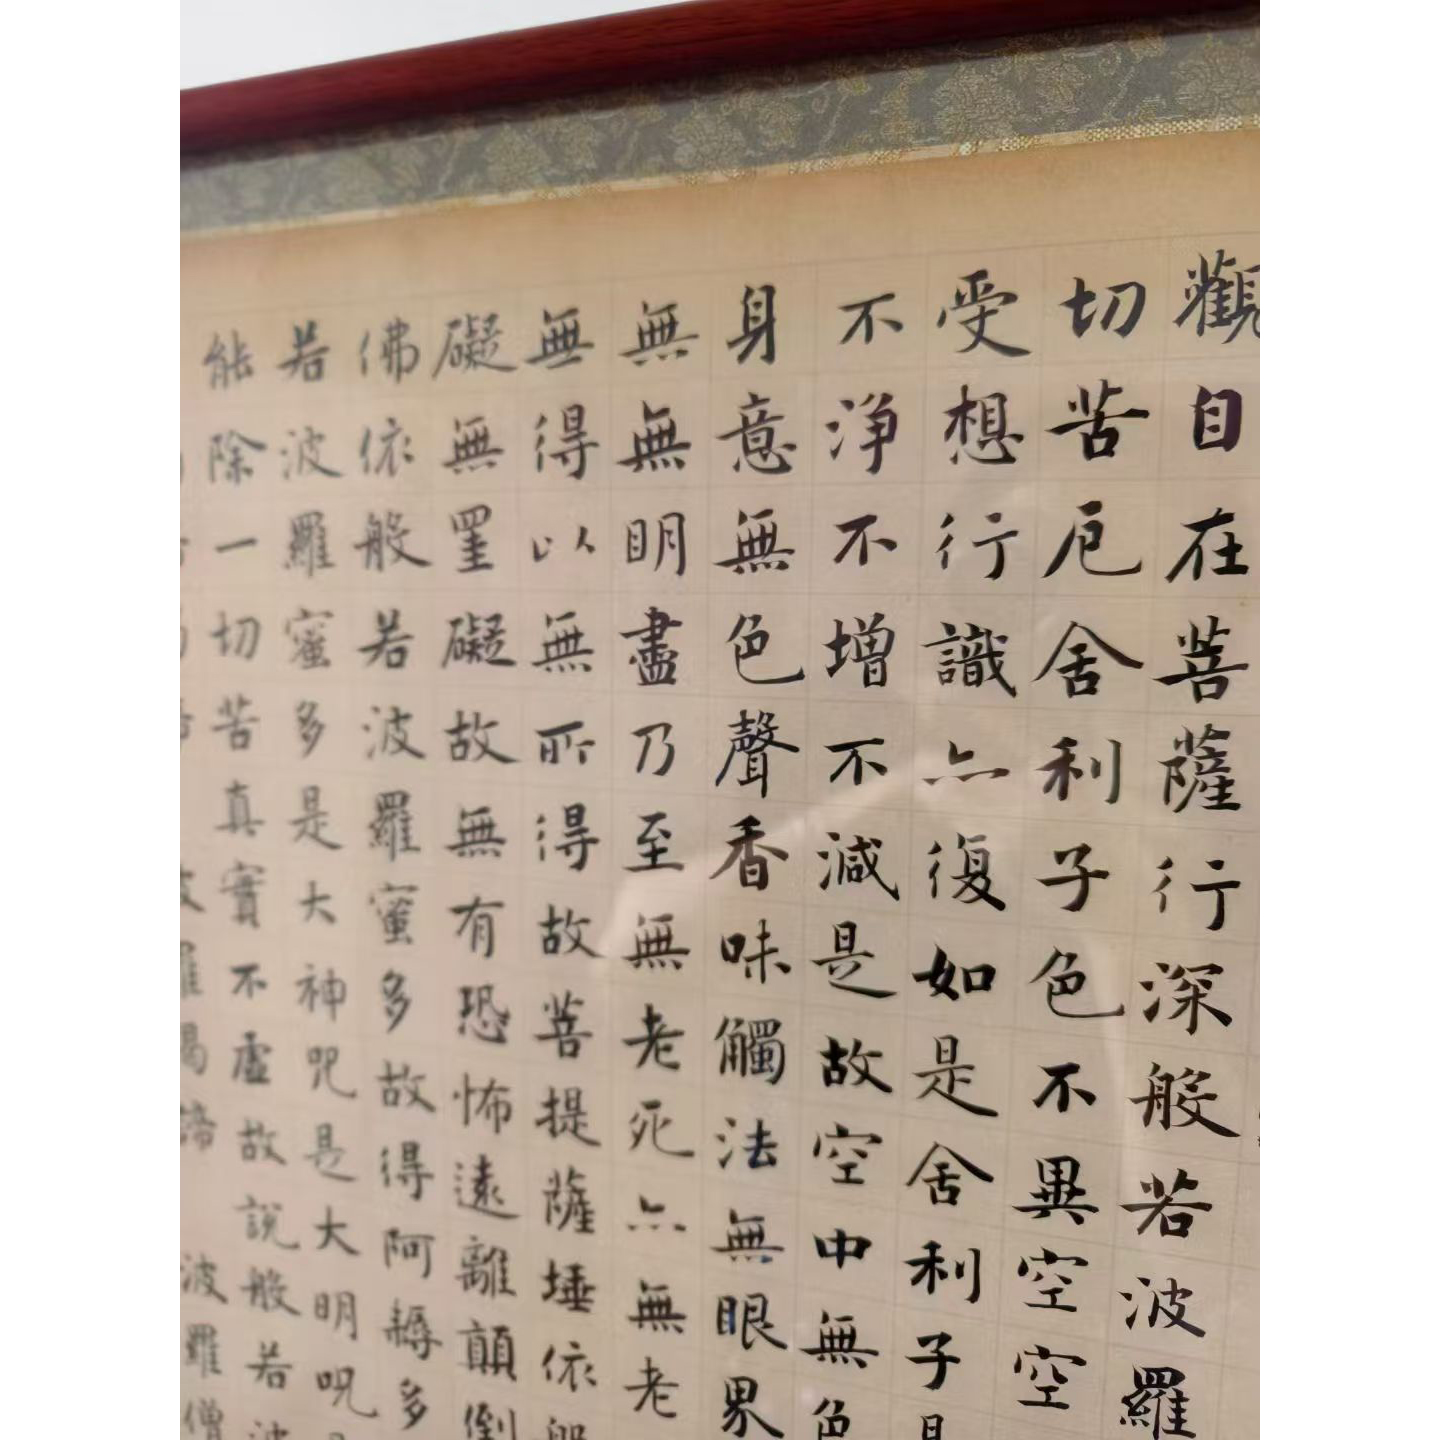 觀自在菩薩行深般若波羅
切苦厄舍利子色不異空空
受想行識亦復如是舍利子是
不淨不增不減是故空中無色
身意無色聲香味觸法無眼界
無無明盡乃至無老死亦無老
無得以無所得故菩提薩埵依般
礙無罣礙故無有恐怖遠離顛倒
佛依般若波羅蜜多故得阿耨多
若波羅蜜多是大神咒是大明咒
能除一切苦真實不虛故說般若波
羅揭諦 波羅僧